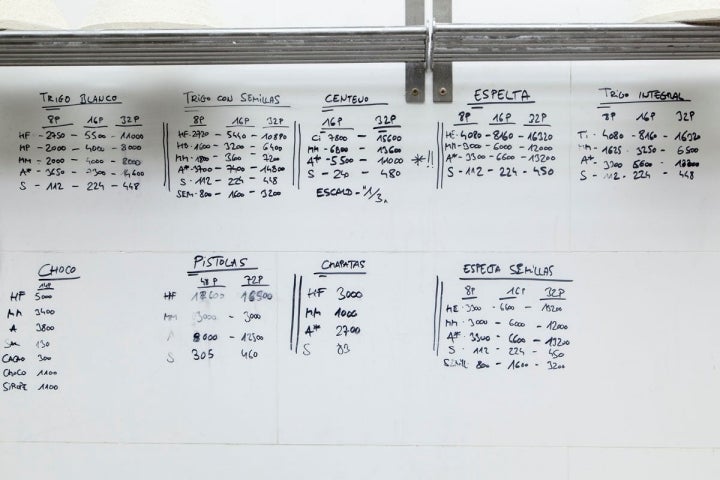 TRIGO BLANCO
8P 16P 32P
HF - 2750 - 5500 - 11000
MP - 2000 - 4000 - 8000
MM - 2000 - 4000 - 8000
A* - 3650 - 7300 - 14600
S - 112 - 224 - 448
TRIGO CON SEMILLAS
8P 16P 32P
HF - 2720 - 5440 - 10880
1600 - 3200 - 6400
MM - 1800 3600 - 7200
A* - 3700 - 7400 - 14800
S - 112 - 224 - 448
SEM - 800 - 1600 - 3200
CENTENO
16P 32P
CI - 7800 - 15600
MM - 6800 - 13600
A* - 5500 - 11000
S - 240 - 480
ESCALD - "1/3
*!!
ESPELTA
8P 16P 32P
HE - 4080 - 8160 - 16320
MM - 3000 - 6000 - 12000
A* - 3300 - 6600 - 13200
S - 112 - 224 - 450
TRIGO INTEGRAL
8P 16P 32P
TI - 4080 - 8160 - 16320
MM - 1625 - 3250 - 6500
A* - 3200
S - 112 - 224 - 448
CHOCO
HF 5000
MM 3400
A 3800
130
CACAO 300
CHOCO 1100
SIROPE 1100
PISTOLAS
48P 72P
HF 16500
MM 3000 - 3000
A 8000 - 12500
S 305 460
CHAPATAS
HF 3000
MM 1000
A* 2700
S 83
ESPELTA SEMILLAS
8P 16P 32P
HE - 3300 - 6600 - 13200
MM - 3000 - 6000 - 12000
A* - 3300 - 6600 - 13200
S - 112 - 224 - 450
SEMILL - 800 - 1600 - 3200